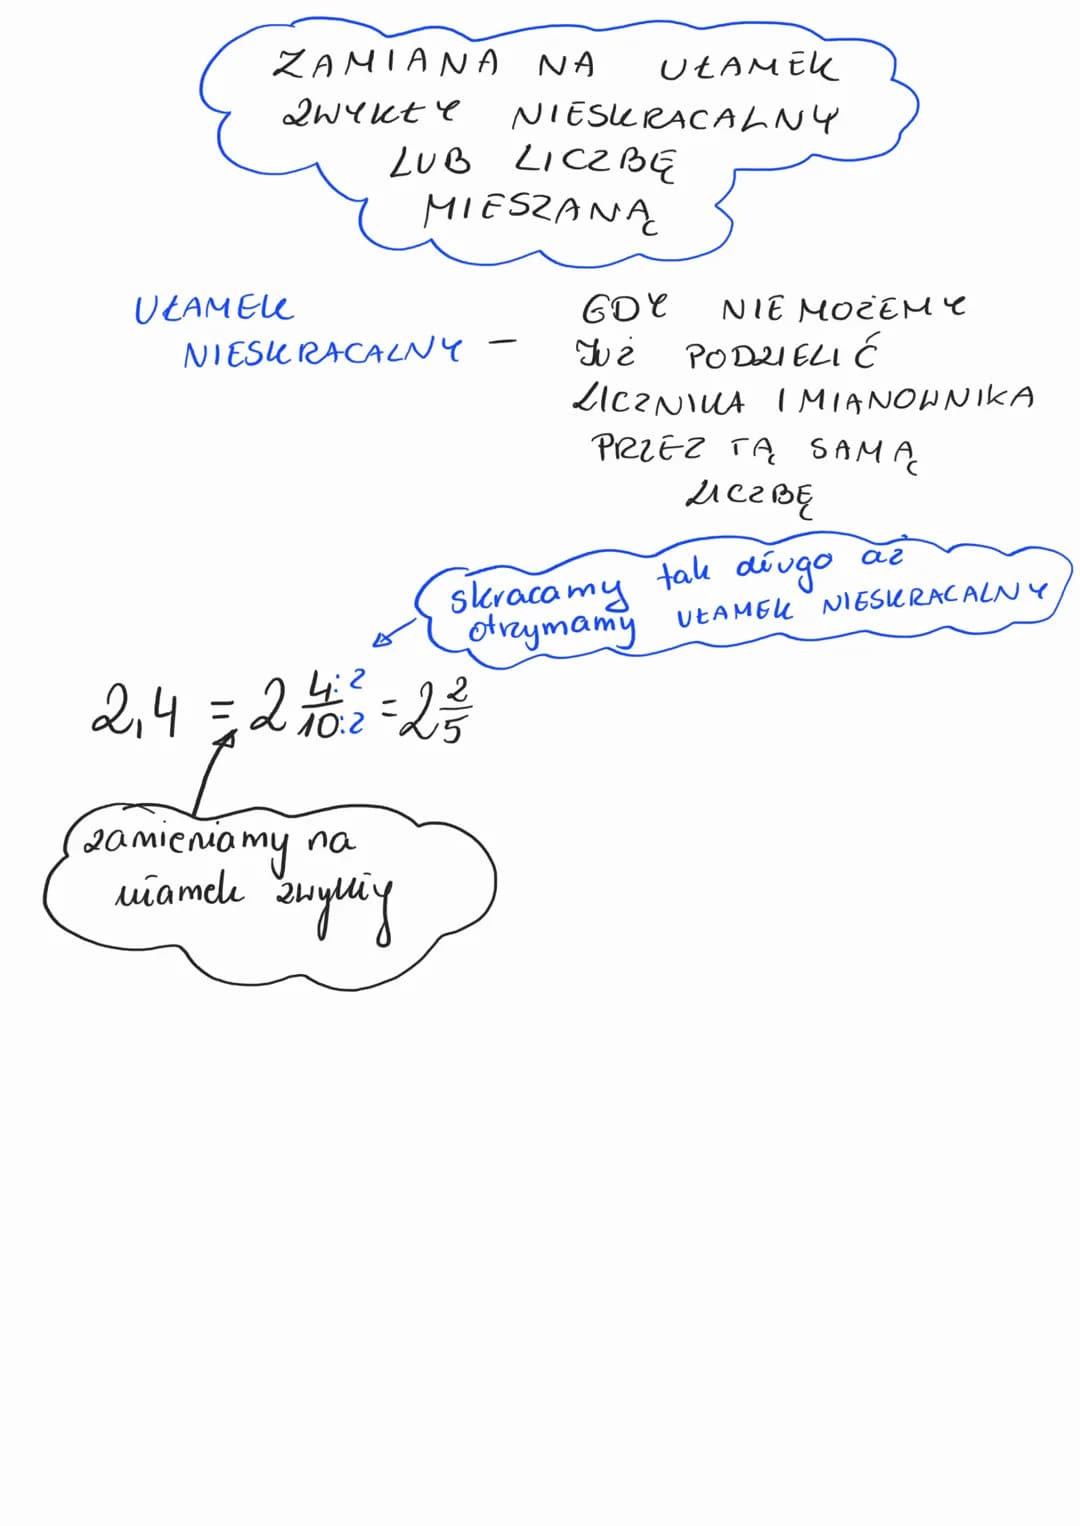 ZAMIANA NA UŁAMEK
ZWYKŁY NIESKRACALNY
LUB LICZBĘ
MIESZANĄ
UŁAMEK
NIESKRACALNY -
GDY NIE MOŻEMY
JUŻ PODZIELIĆ
LICZNIKA I MIANOWNIKA
PRZEZ TĄ SAMĄ
LICZBĘ
skracamy tak długo aż
otrzymamy UŁAMEK NIESKRACALNY
2,4 = 2 4:2/10:2 = 2 2/5
zamieniamy na
ułamek zwykły